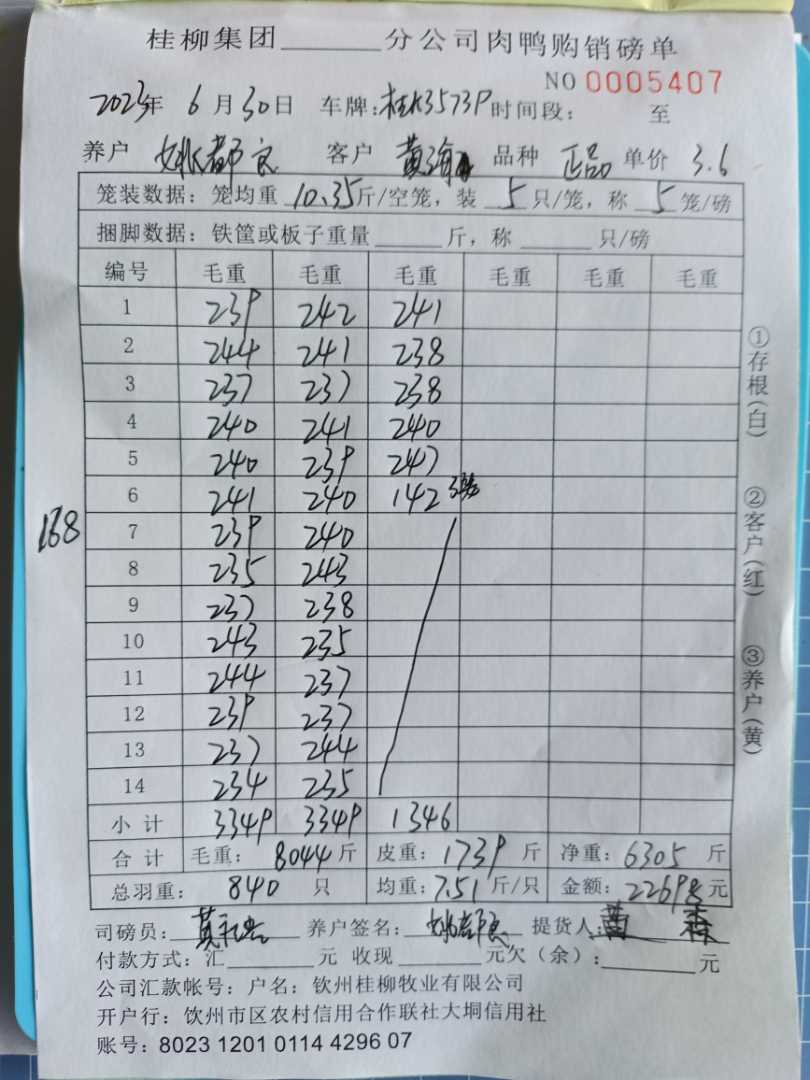 桂柳集团______分公司肉鸭购销磅单
NO 0005407
2023年 6月30日 车牌:桂K3573P 时间段: 至
养户 姚都良 客户 黄海 品种 正品 单价 3.6
笼装数据:笼均重 10.35斤/空笼,装 5 只/笼,称 5 笼/磅
捆脚数据:铁筐或板子重量______斤,称______只/磅
编号 毛重 毛重 毛重 毛重 毛重 毛重
1 239 242 241
2 244 241 238
3 237 237 238
4 240 241 240
5 240 239 247
6 241 240 142 3笼
7 239 240
8 235 243
9 237 238
10 243 235
11 244 237
12 239 237
13 237 244
14 234 235
小计 3349 3349 1346
合计 毛重: 8044 斤 皮重: 1739 斤 净重: 6305 斤
总羽重: 840 只 均重: 7.51 斤/只 金额: 22698 元
司磅员: 养户签名: 姚都良 提货人: 黄 森
付款方式:汇______元 收现______元欠(余):______元
公司汇款帐号:户名:钦州桂柳牧业有限公司
开户行:钦州市区农村信用合作联社大垌信用社
账号:8023 1201 0114 4296 07
168
①存根(白)
②客户(红)
③养户(黄)